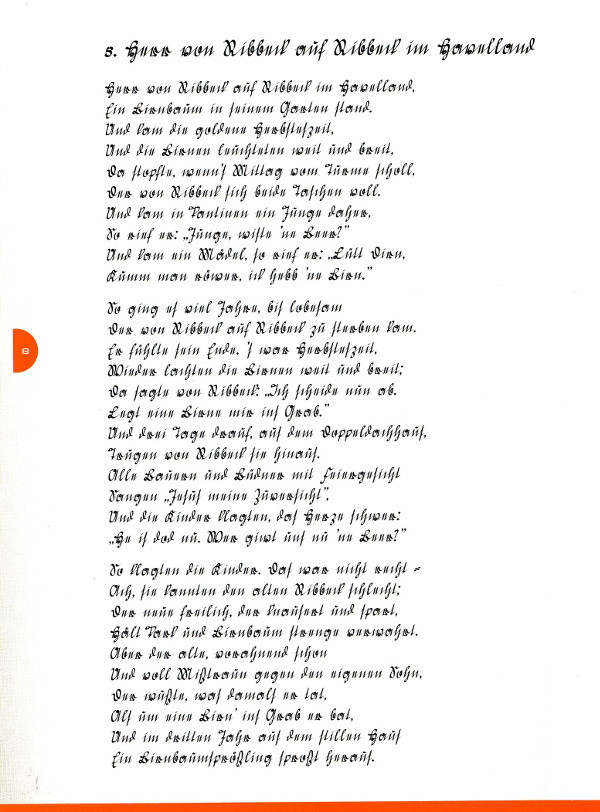 5. Herr von Ribbeck auf Ribbeck im Havelland
Herr von Ribbeck auf Ribbeck im Havelland,
Ein Birnbaum in seinem Garten stand.
Und kam die goldene Herbsteszeit,
Und die Birnen leuchteten weit und breit,
Da stopfte, wenn's Mittag vom Turme scholl,
Der von Ribbeck sich beide Taschen voll.
Und kam in Pantinen ein Junge daher,
So rief er: „Junge, wiste 'ne Beer?"
Und kam ein Mädel, so rief er: „Lütt Dirn,
Kumm man röwer, ick hebb 'ne Birn."
So ging es viel Jahre, bis lobesam
Der von Ribbeck auf Ribbeck zu sterben kam.
Er fühlte sein Ende. 's war Herbsteszeit,
Wieder lachten die Birnen weit und breit;
Da sagte von Ribbeck: „Ich scheide nun ab.
Legt eine Birne mir ins Grab."
Und drei Tage drauf, aus dem Doppeldachhaus,
Trugen von Ribbeck sie hinaus.
Alle Bauern und Büdner mit Feiergesicht
Sangen „Jesus meine Zuversicht".
Und die Kinder klagten, das Herze schwer:
„He is dod nu. Wer giwt uns nu 'ne Beer?"
So klagten die Kinder. Das war nicht recht -
Ach, sie kannten den alten Ribbeck schlecht;
Der neue freilich, der knausert und spart,
Hält Park und Birnbaum strenge verwahrt.
Aber der alte, vorahnend schon
Und voll Mißtraun gegen den eigenen Sohn,
Der wußte, was damals er tat,
Als um eine Birn' ins Grab er bat,
Und im dritten Jahr aus dem stillen Haus
Ein Birnbaumsprößling sproßt heraus.
8